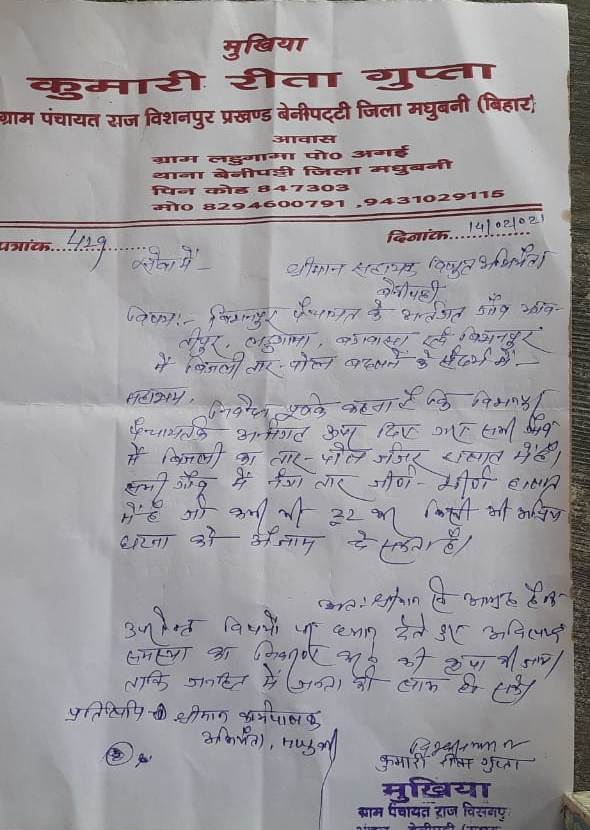 मुखिया
कुमारी रीता गुप्ता
ग्राम पंचायत राज विशनपुर प्रखण्ड बेनीपट्टी जिला मधुबनी (बिहार)
आवास
ग्राम लडुगामा पो० अगई
थाना बेनीपट्टी जिला मधुबनी
पिन कोड 847303
मो० 8294600791 ,9431029115
पत्रांक.... 429 ....
दिनांक.... 14/02/021
सेवा में -
श्रीमान सहायक विद्युत अभियंता
बेनीपट्टी
विषय:- विशनपुर पंचायत के अंतर्गत गाँव
लडुगामा, एवं विशनपुर
में बिजली तार-पोल बदलने के संदर्भ में:-
महाशय,
निवेदन पूर्वक कहना है कि विशनपुर
पंचायत के अंतर्गत ऊपर दिए गए सभी गाँव
में बिजली का तार-पोल जर्जर हालात में है।
सभी गाँव में नंगा तार जीर्ण-शीर्ण हालात
में है जो कभी भी टूट कर किसी भी अप्रिय
घटना को अंजाम दे सकता है।
अतः श्रीमान से आग्रह है कि
उपरोक्त विषयों पर ध्यान देते हुए अविलम्ब
समस्या का निवारण करने की कृपा की जाय।
ताकि जनहित में जनता को लाभ हो सके।
प्रतिलिपि श्रीमान कार्यपालक
अभियंता, मधुबनी
कुमारी रीता गुप्ता
मुखिया
ग्राम पंचायत राज विसनपुर